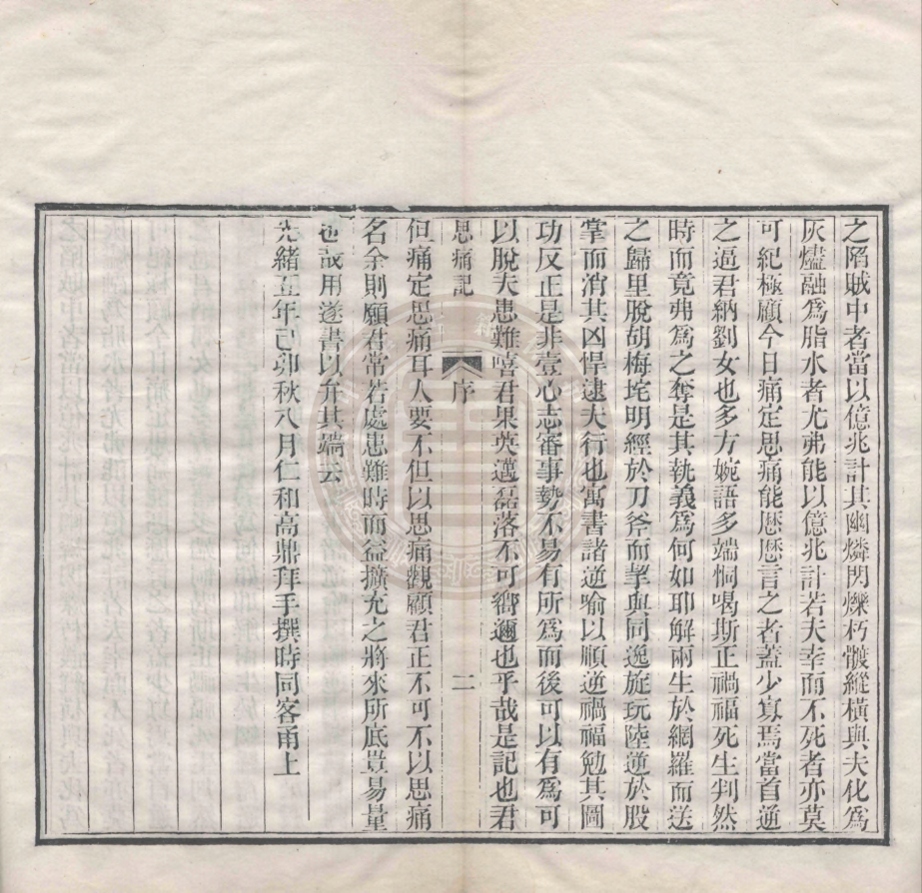 之陷賊中者當以億兆計其幽燐閃爍朽骸縱橫與夫化爲
灰燼融爲脂水者尤弗能以億兆計若夫幸而不死者亦莫
可紀極顧今日痛定思痛能歷歷言之者蓋少寡焉當首逆
之逼君納劉女也多方婉語多端恫喝斯正禍福死生判然
時而竟弗爲之奪是其執義爲何如耶解兩生於網羅而送
之歸里脫胡梅垞明經於刀斧而挈與同逸旋玩陸逆於股
掌而消其凶悍逮夫行也寓書諸逆喻以順逆禍福勉其圖
功反正是非壹心志審事勢不易有所爲而後可以有爲可
以脫夫患難嘻君果英邁磊落不可嚮邇也乎哉是記也君
思痛記
序
二
但痛定思痛耳人要不但以思痛觀顧君正不可不以思痛
名余則願君常若處患難時而益擴充之將來所底豈易量
也哉用遂書以弁其端云
光緒五年己卯秋八月仁和高鼎拜手撰時同客甬上